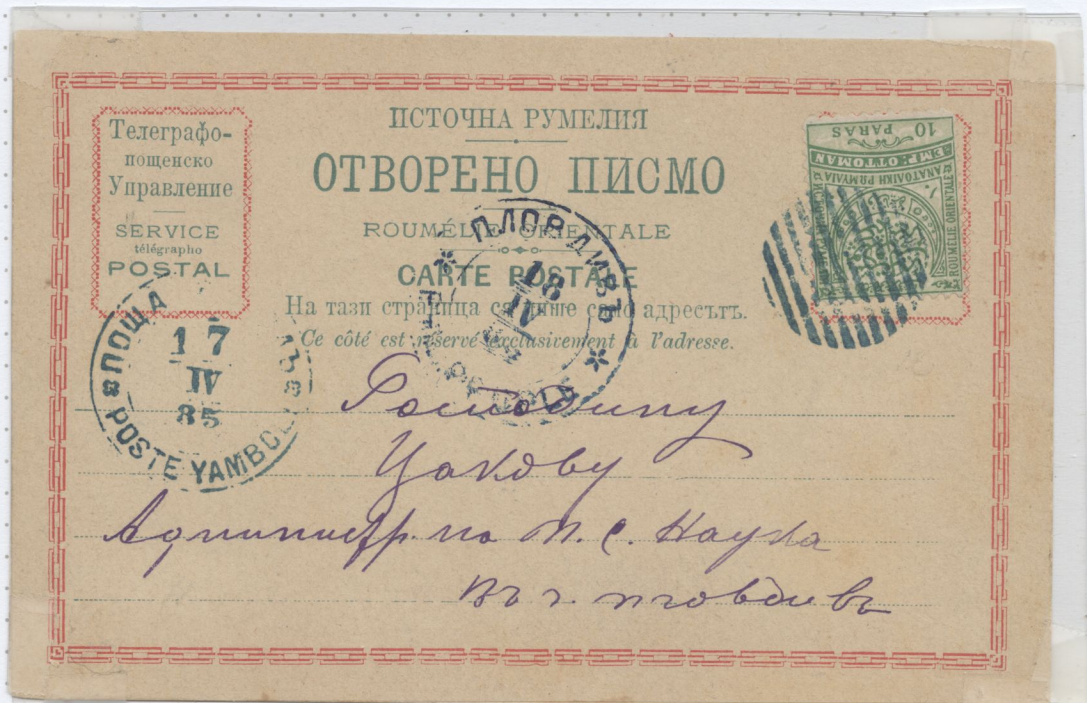 Телеграфо-
пощенско
Управление
SERVICE
télégrapho
POSTAL
ИСТОЧНА РУМЕЛИЯ
ОТВОРЕНО ПИСМО
ROUMÉLIE ORIENTALE
CARTE POSTALE
На тази страница се пише само адресътъ.
Ce côté est réservé exclusivement à l'adresse.
10 PARAS
EMP: OTTOMAN
ΑΝΑΤΟΛΙΚΗ ΡΩΜΥΛΙΑ
ROUMELIE ORIENTALE
ПЛОВДИВЪ
18
IV
ПОЩА
17
IV
85
POSTE YAMBO
Господину
Цакову
Администр. на
С. Наука
въ г. Пловдивъ